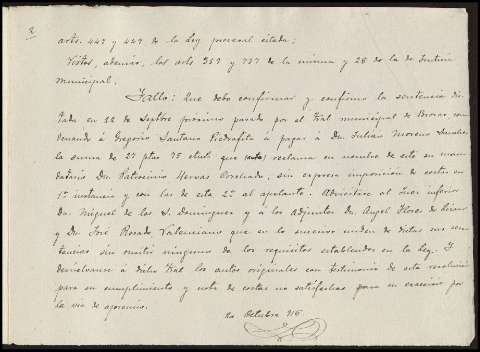 2
arts. 449 y 429 de la Ley procesal citada;
Vistos, además, los arts 359 y 737 de la misma y 28 de la de Justicia
municipal.
Fallo: Que debo confirmar y confirmo la sentencia dic-
tada en 22 de Septbre próximo pasado por el Tbal municipal de Brozas, con-
denando á Gregorio Santana Piedrafita á pagar á Dn. Julian Moreno
la suma de 27 ptas 75 ctmts que reclama en nombre de este su man-
datario Dn. Patrocinio Hervas, sin expresa imposicion de costas en
1ª instancia y con las de esta 2ª al apelante. Adviertese al Juez inferior
Dn. Miguel de los S. Dominguez y á los adjuntos Dn. Angel Flores de
y Dn José Rosado Valenciano que en lo sucesivo cuiden de dictar sus sen-
tencias sin omitir ninguno de los requisitos establecidos en la ley. Y
devuelvanse á dicho Tbal los autos originales con testimonio de esta resolucion
para su cumplimiento y nota de costas no satisfechas para su exaccion por
la via de apremio.
Octubre 916